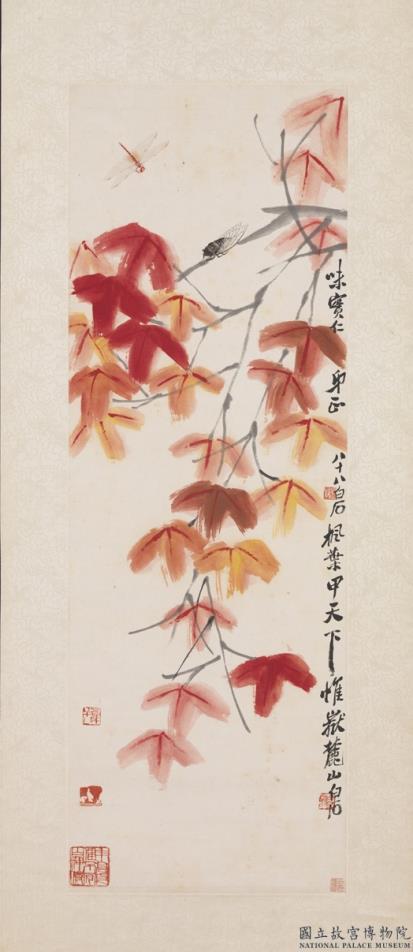 味寶仁 弟正 八十八白石 楓葉甲天下惟嶽麓山 白石
國立故宮博物院
NATIONAL PALACE MUSEUM